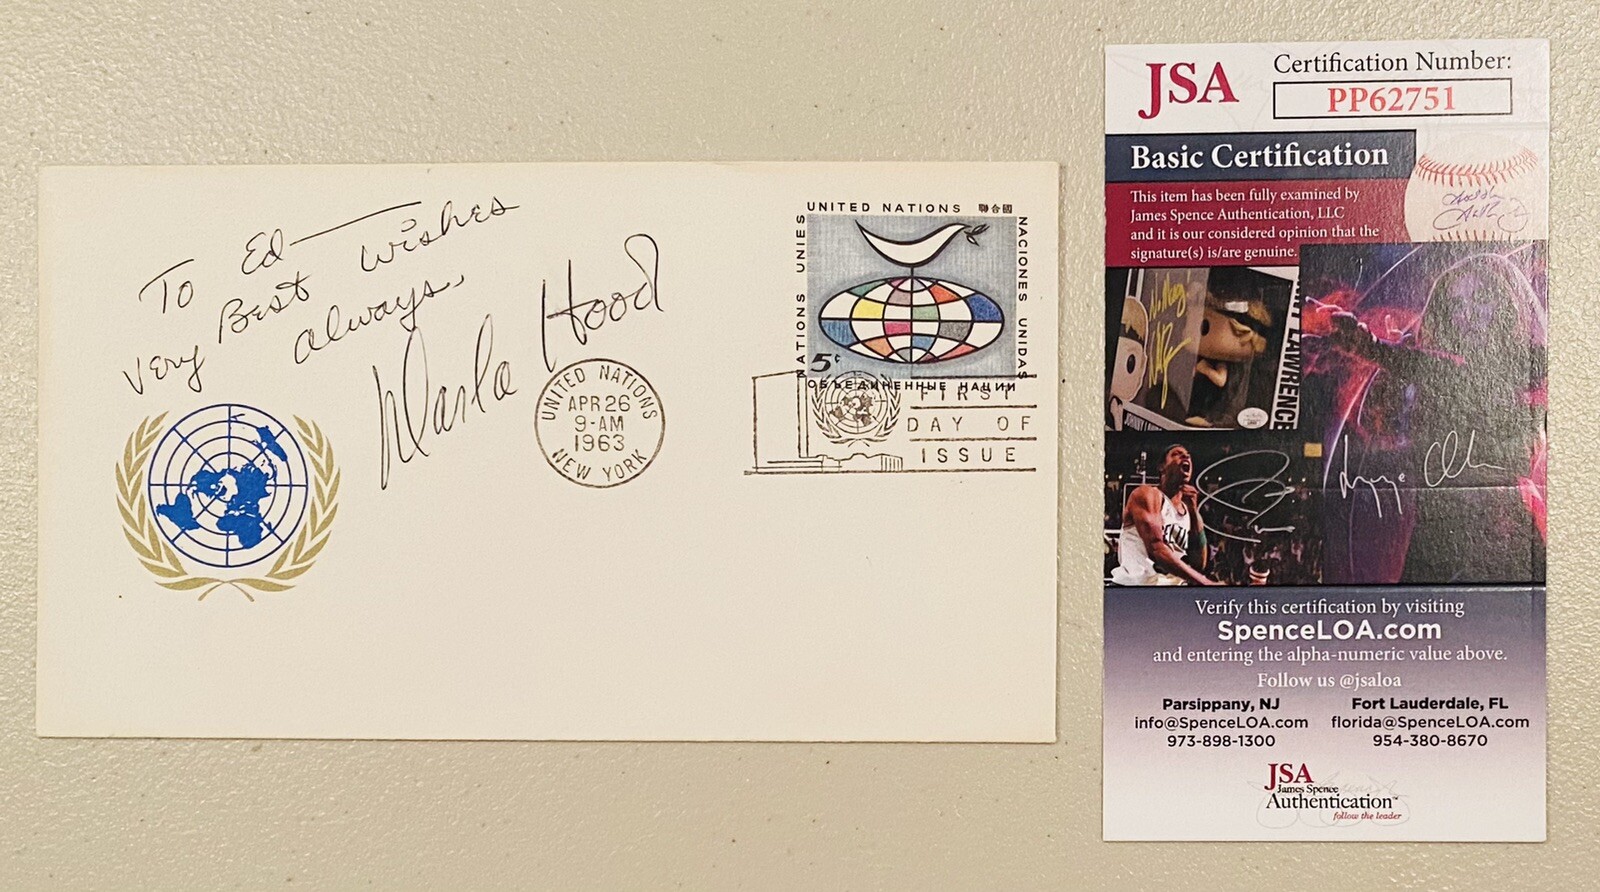 To Ed—
Very Best Wishes
always,
Darla Hood
UNITED NATIONS
APR 26
9-AM
1963
NEW YORK
UNITED NATIONS 聯合國
NATIONS UNIES
NACIONES UNIDAS
5¢
ОБЪЕДИНЕННЫЕ НАЦИИ
FIRST
DAY OF
ISSUE
JSA
Certification Number:
PP62751
Basic Certification
This item has been fully examined by
James Spence Authentication, LLC
and it is our considered opinion that the
signature(s) is/are genuine.
LAWRENCE
Verify this certification by visiting
SpenceLOA.com
and entering the alpha-numeric value above.
Follow us @jsaloa
Parsippany, NJ
info@SpenceLOA.com
973-898-1300
Fort Lauderdale, FL
florida@SpenceLOA.com
954-380-8670
JSA
James Spence
Authentication™
follow the leader